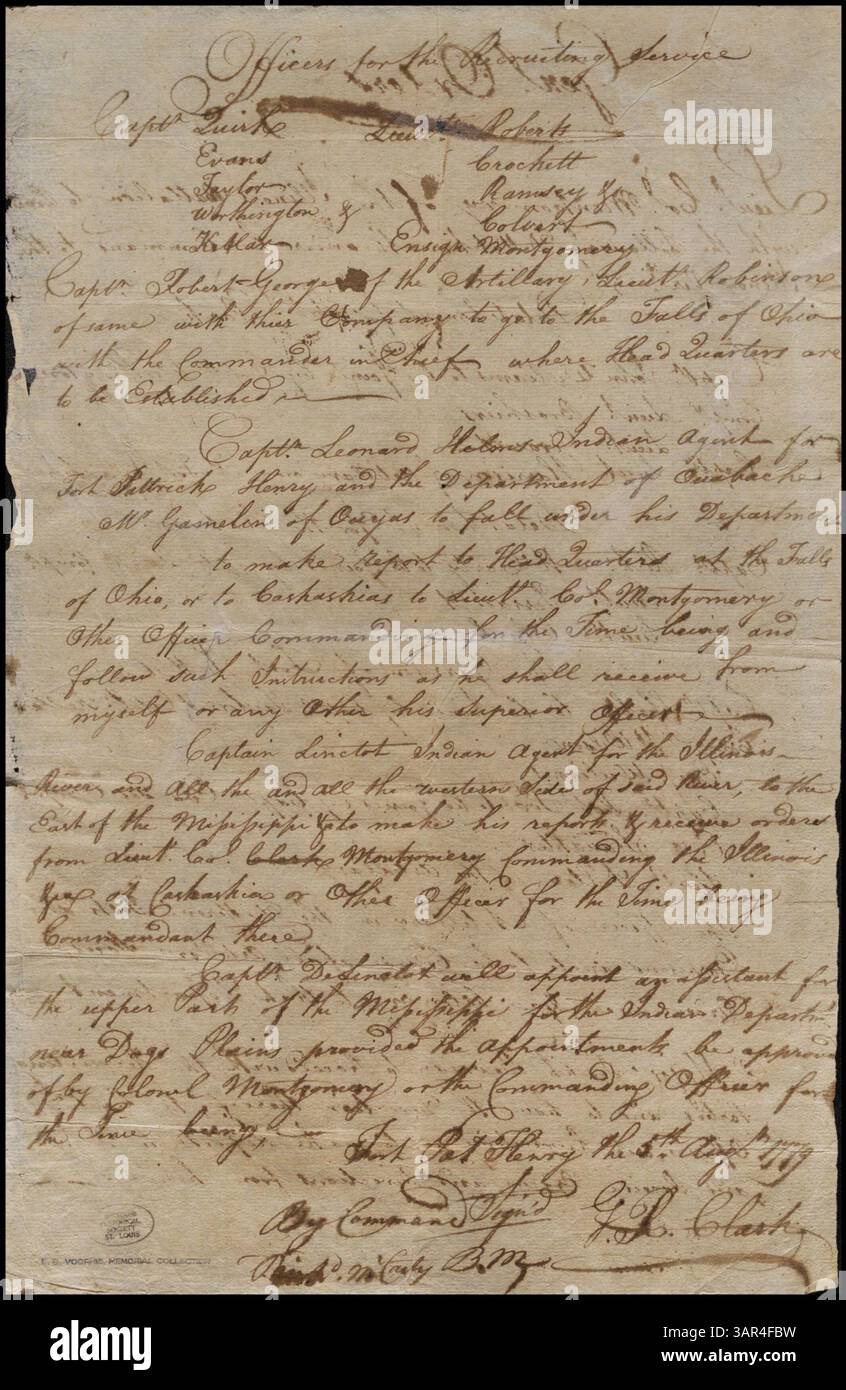 Officers for the Recruiting Service
Captn. Quirk Lieut. Roberts
Evans Crockett
Taylor Ramsey &
Worthington & Colvert
Kellar Ensign Montgomery
Captn. Robert George of the Artillary, Lieut. Robinson
of same with thier Company to go to the Falls of Ohio
with the Commander in Chief where Head Quarters are
to be Established
Captn. Leonard Helms Indian Agent for
Fort Pattrick Henry and the Department of Ouabache
Mr. Gamelin of Ouyas to fall under his Departmen
to make report to Head Quarters at the Falls
of Ohio, or to Caskaskias to Lieut. Col. Montgomery or
Other Officer Commanding for the Time being and
follow such Instructions as he shall receive from
myself or any Other his Superior Officer
Captain Linctot Indian Agent for the Illinois
River and All the and all the western Side of said River, to the
East of the Missisippi & to make his reports & receive orders
from Lieut. Col. Clark Montgomery Commanding the Illinois
&ca at Caskaskia or Other Officer for the Time being
Commandant there,
Captn. DeLinctot will appoint an assistant for
the upper Part of the Missisippi for the Indian Departmt.
near Dogs Plains provided the appointments be approved
of by Colonel Montgomery or the Commanding Officer for
the Time being,
Fort Pat Henry the 5th Augst. 1779
By Command Sign'd G. R. Clark
Richd. McCarty B.M.
HISTORICAL
SOCIETY
ST. LOUIS
E. G. VOORHIS MEMORIAL COLLECTION
alamy
3AR4FBW
www.alamy.com